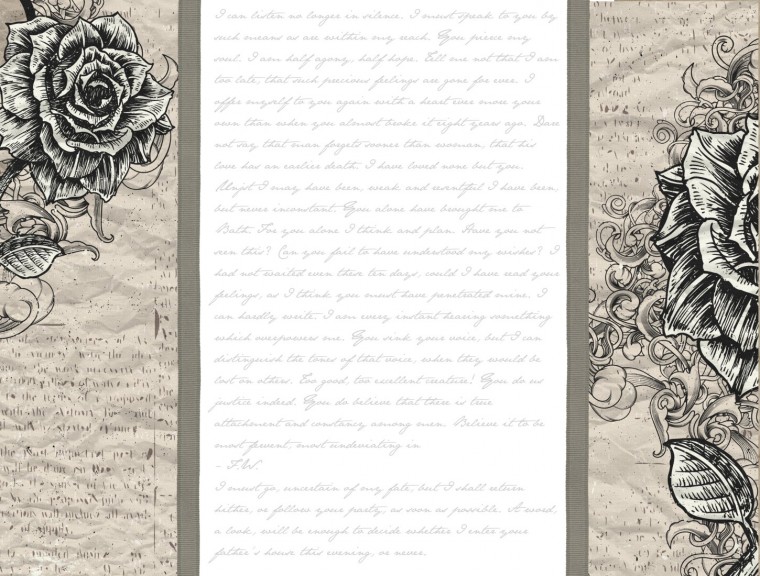 I can listen no longer in silence. I must speak to you by
such means as are within my reach. You pierce my
soul. I am half agony, half hope. Tell me not that I am
too late, that such precious feelings are gone for ever. I
offer myself to you again with a heart ever more your
own than when you almost broke it eight years ago. Dare
not say that man forgets sooner than woman, that his
love has an earlier death. I have loved none but you.
Unjust I may have been, weak and resentful I have been,
but never inconstant. You alone have brought me to
Bath. For you alone I think and plan. Have you not
seen this? Can you fail to have understood my wishes? I
had not waited even these ten days, could I have read your
feelings, as I think you must have penetrated mine. I
can hardly write. I am every instant hearing something
which overpowers me. You sink your voice, but I can
distinguish the tones of that voice, when they would be
lost on others. Too good, too excellent creature! You do us
justice indeed. You do believe that there is true
attachment and constancy among men. Believe it to be
most fervent, most undeviating in
- F.W.
I must go, uncertain of my fate, but I shall return
hither, or follow your party, as soon as possible. A word,
a look, will be enough to decide whether I enter your
father's house this evening, or never.